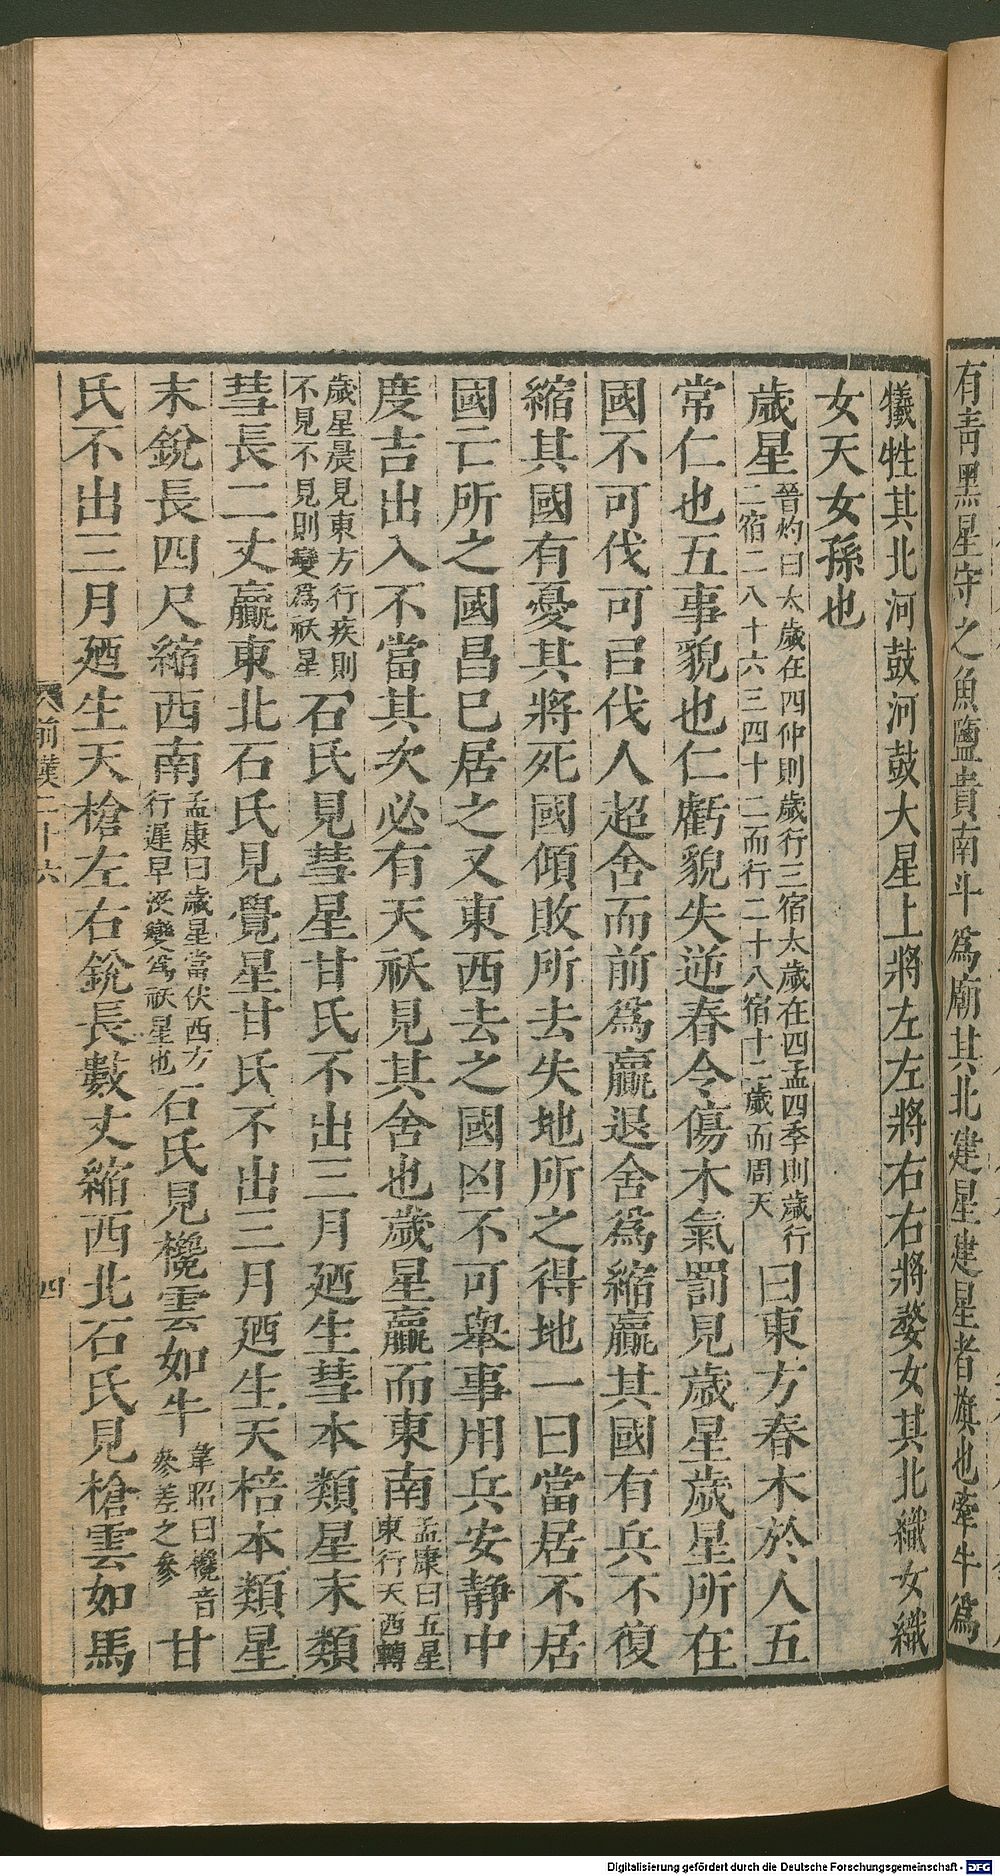 有靑黑星守之魚鹽貴南斗爲廟其北建星建星者旗也牽牛爲
犧牲其北河鼓河鼓大星上將左左將右右將婺女其北織女織
女天女孫也
歲星晉灼曰太歲在四仲則歲行三宿太歲在四孟四季則歲行二宿二八十六三四十二而行二十八宿十二歲而周天曰東方春木於人五
常仁也五事貌也仁虧貌失逆春令傷木氣罰見歲星歲星所在
國不可伐可㠯伐人超舍而前爲贏退舍爲縮贏其國有兵不復
縮其國有憂其將死國傾敗所去失地所之得地一曰當居不居
國亡所之國昌已居之又東西去之國凶不可舉事用兵安靜中
度吉出入不當其次必有天祅見其舍也歲星贏而東南孟康曰五星東行天西轉
歲星晨見東方行疾則不見不見則變爲祅星石氏見彗星甘氏不出三月廼生彗本類星末類
彗長二丈贏東北石氏見覺星甘氏不出三月廼生天棓本類星
末銳長四尺縮西南孟康曰歲星當伏西方行遲早沒變爲祅星也石氏見欃雲如牛韋昭曰欃音參差之參甘
氏不出三月廼生天槍左右銳長數丈縮西北石氏見槍雲如馬
前漢二十六
四
Digitalisierung gefördert durch die Deutsche Forschungsgemeinschaft - DFG